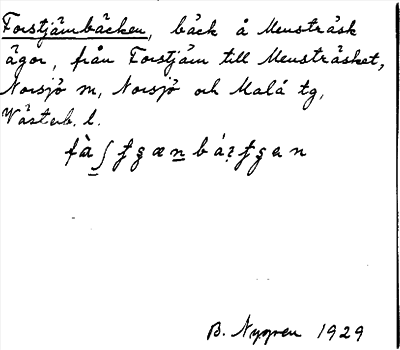 Forstjämbäcken, bäck å Mensträsk
ägor, från Forstjäm till Mensträsket,
Norsjö sn, Norsjö och Malå tg,
Västerb. l.
B. Nygren 1929